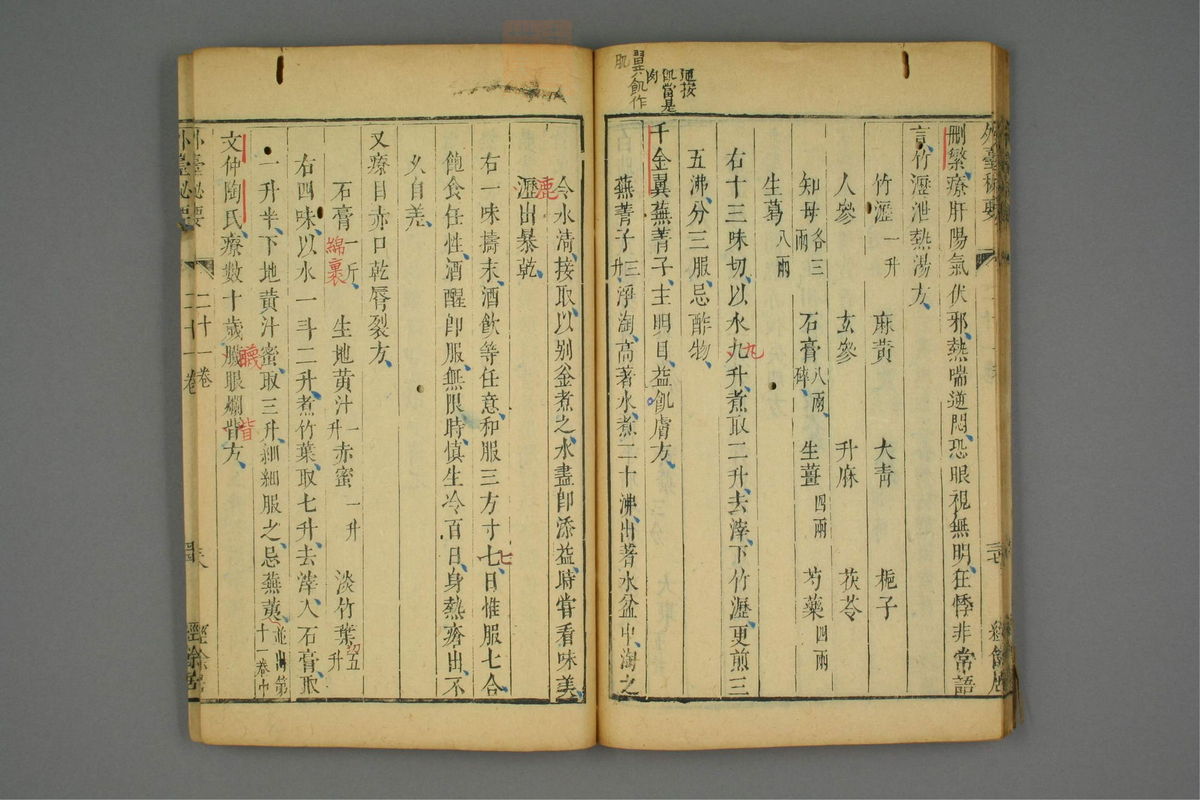 翼飢作
肌
迴按
飢當是
肉
外臺秘要
刪繁療肝陽氣伏邪熱喘逆悶恐眼視無明狂悸非常語
言竹瀝泄熱湯方
竹瀝一升 麻黃 大青 梔子
人參 玄參 升麻 茯苓
知母各三兩 石膏八兩碎 生薑四兩 芍藥四兩
生葛八兩
右十三味切以水九升煮取二升去滓下竹瀝更煎三
九
五沸分三服忌酢物
千金翼蕪菁子主明目益飢膚方
蕪菁子三升淨淘高著水煮二十沸出著水盆中淘之
令水清接取以別釜煮之水盡即添益時嘗看味美
瀝出暴乾
鹿
右一味擣末酒飲等任意和服三方寸七日惟服七合
七
飽食任性酒醒即服無限時慎生冷百日身熱瘡出不
久自差
又療目赤口乾唇裂方
石膏一斤 生地黃汁一升 赤蜜一升 淡竹葉切五升
綿裹
右四味以水一斗二升煮竹葉取七升去滓入石膏取
一升半下地黃汁蜜取三升細細服之忌蕪荑並出第十一卷中
文仲陶氏療數十歲膜眼爛眥方
眥
外臺秘要
二十一卷